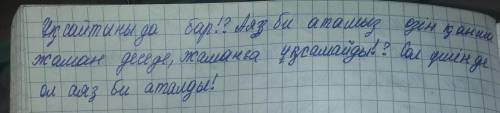 Ұқсайтыны да бар!? Аяз би атамыз өзін қанша
жаман десе де, жаманға ұқсамайды!? Сол үшін де
ол аяз би аталды!